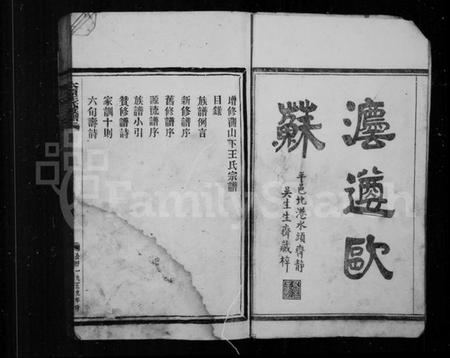 灋遵歐
蘇
平邑北港水頭齊靜
吳生生齊藏梓
增修蕭山下王氏宗譜
目錄
族譜例言
新修譜序
舊修譜序
源流譜序
族譜小引
贊修譜詩
家訓十則
六旬壽詩
FamilySearch